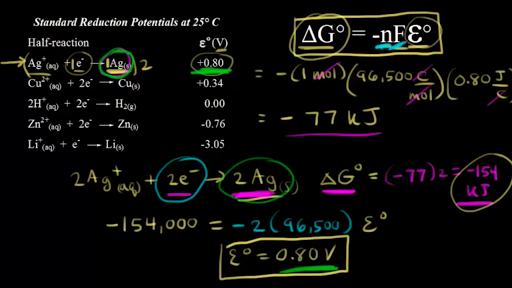 Standard Reduction Potentials at 25° C
Half-reaction ε° (V)
Ag⁺(aq) + 1e⁻ → 1Ag(s) 2 +0.80
Cu²⁺(aq) + 2e⁻ → Cu(s) +0.34
2H⁺(aq) + 2e⁻ → H₂(g) 0.00
Zn²⁺(aq) + 2e⁻ → Zn(s) -0.76
Li⁺(aq) + e⁻ → Li(s) -3.05
ΔG° = -nFε°
= -(1 mol)(96,500 C/mol)(0.80 J/C)
= -77 kJ
2Ag⁺(aq) + 2e⁻ → 2Ag(s) ΔG° = (-77)2 = -154 kJ
-154,000 = -2(96,500) ε°
ε° = 0.80V